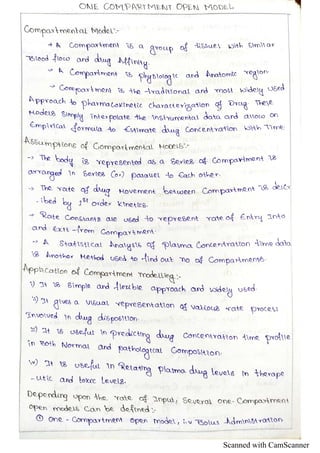 ONE COMPARTMENT OPEN MODEL
Compartmental Model:-
→ A Compartment is a group of tissues with Similar
Blood flow and drug Affinity.
→ A Compartment is physiologic and Anatomic region
→ Compartment is the traditional and most widely used
Approach to pharmacokinetic characterization of Drug These
Models Simply interpolate the instrumental data and allow an
Empirical formula to Estimate drug Concentration with Time.
Assumptions of Compartmental Models:-
→ The body is represented as a Series of Compartment is
arranged in Series (or) parallel to Each other.
→ The rate of drug Movement between Compartment is descr
-ibed by 1st order kinetics.
→ Rate Constants are used to represent rate of Entry Into
and Exit from Compartment.
→ A Statistical Analysis of plasma Concentration time data
is Another Method used to find out no of Compartments.
Application of Compartment Modelling:-
i) It is Simple and flexible approach and widely used.
ii) It gives a visual representation of various rate process
Involved in drug disposition.
iii) It is useful in predicting drug Concentration time profile
in Both Normal and pathological Composition.
iv) It is useful in Relating plasma drug levels in therape
-utic and toxic levels.
Depending upon the rate of Input, Several one-Compartment
open models Can be defined:-
① One-Compartment open model, i.v Bolus Administration
Scanned with CamScanner